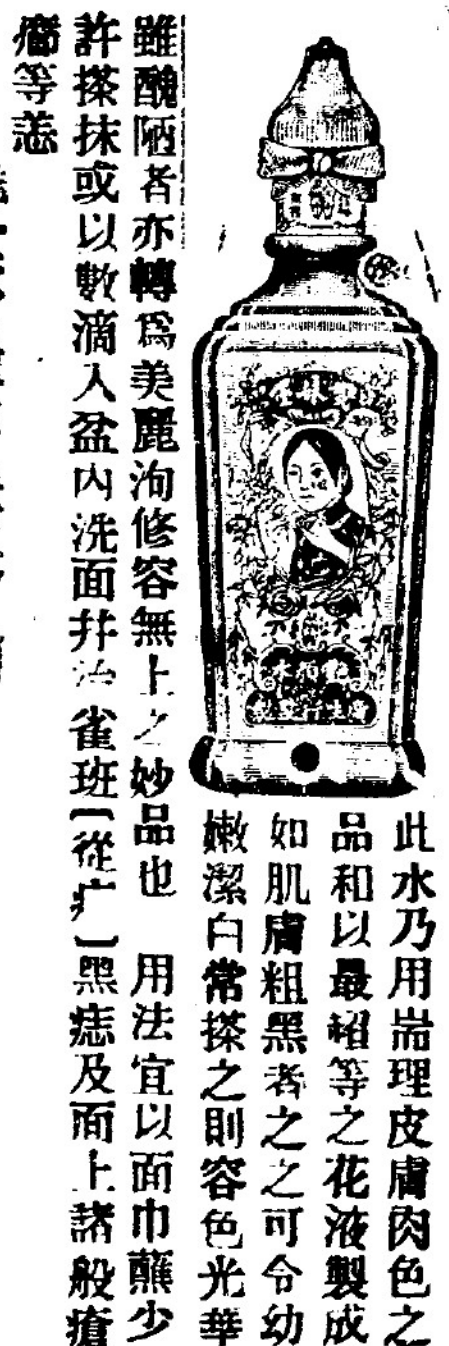 此水乃用耑理皮膚肉色之
品和以最超等之花液製成
如肌膚粗黑者之之可令幼
嫩潔白常搽之則容色光華
雖醜陋者亦轉爲美麗洵修容無上之妙品也　用法宜以面巾蘸少
許搽抹或以數滴入盆內洗面并治雀班【從疒】黑痣及面上諸般瘡
等恙